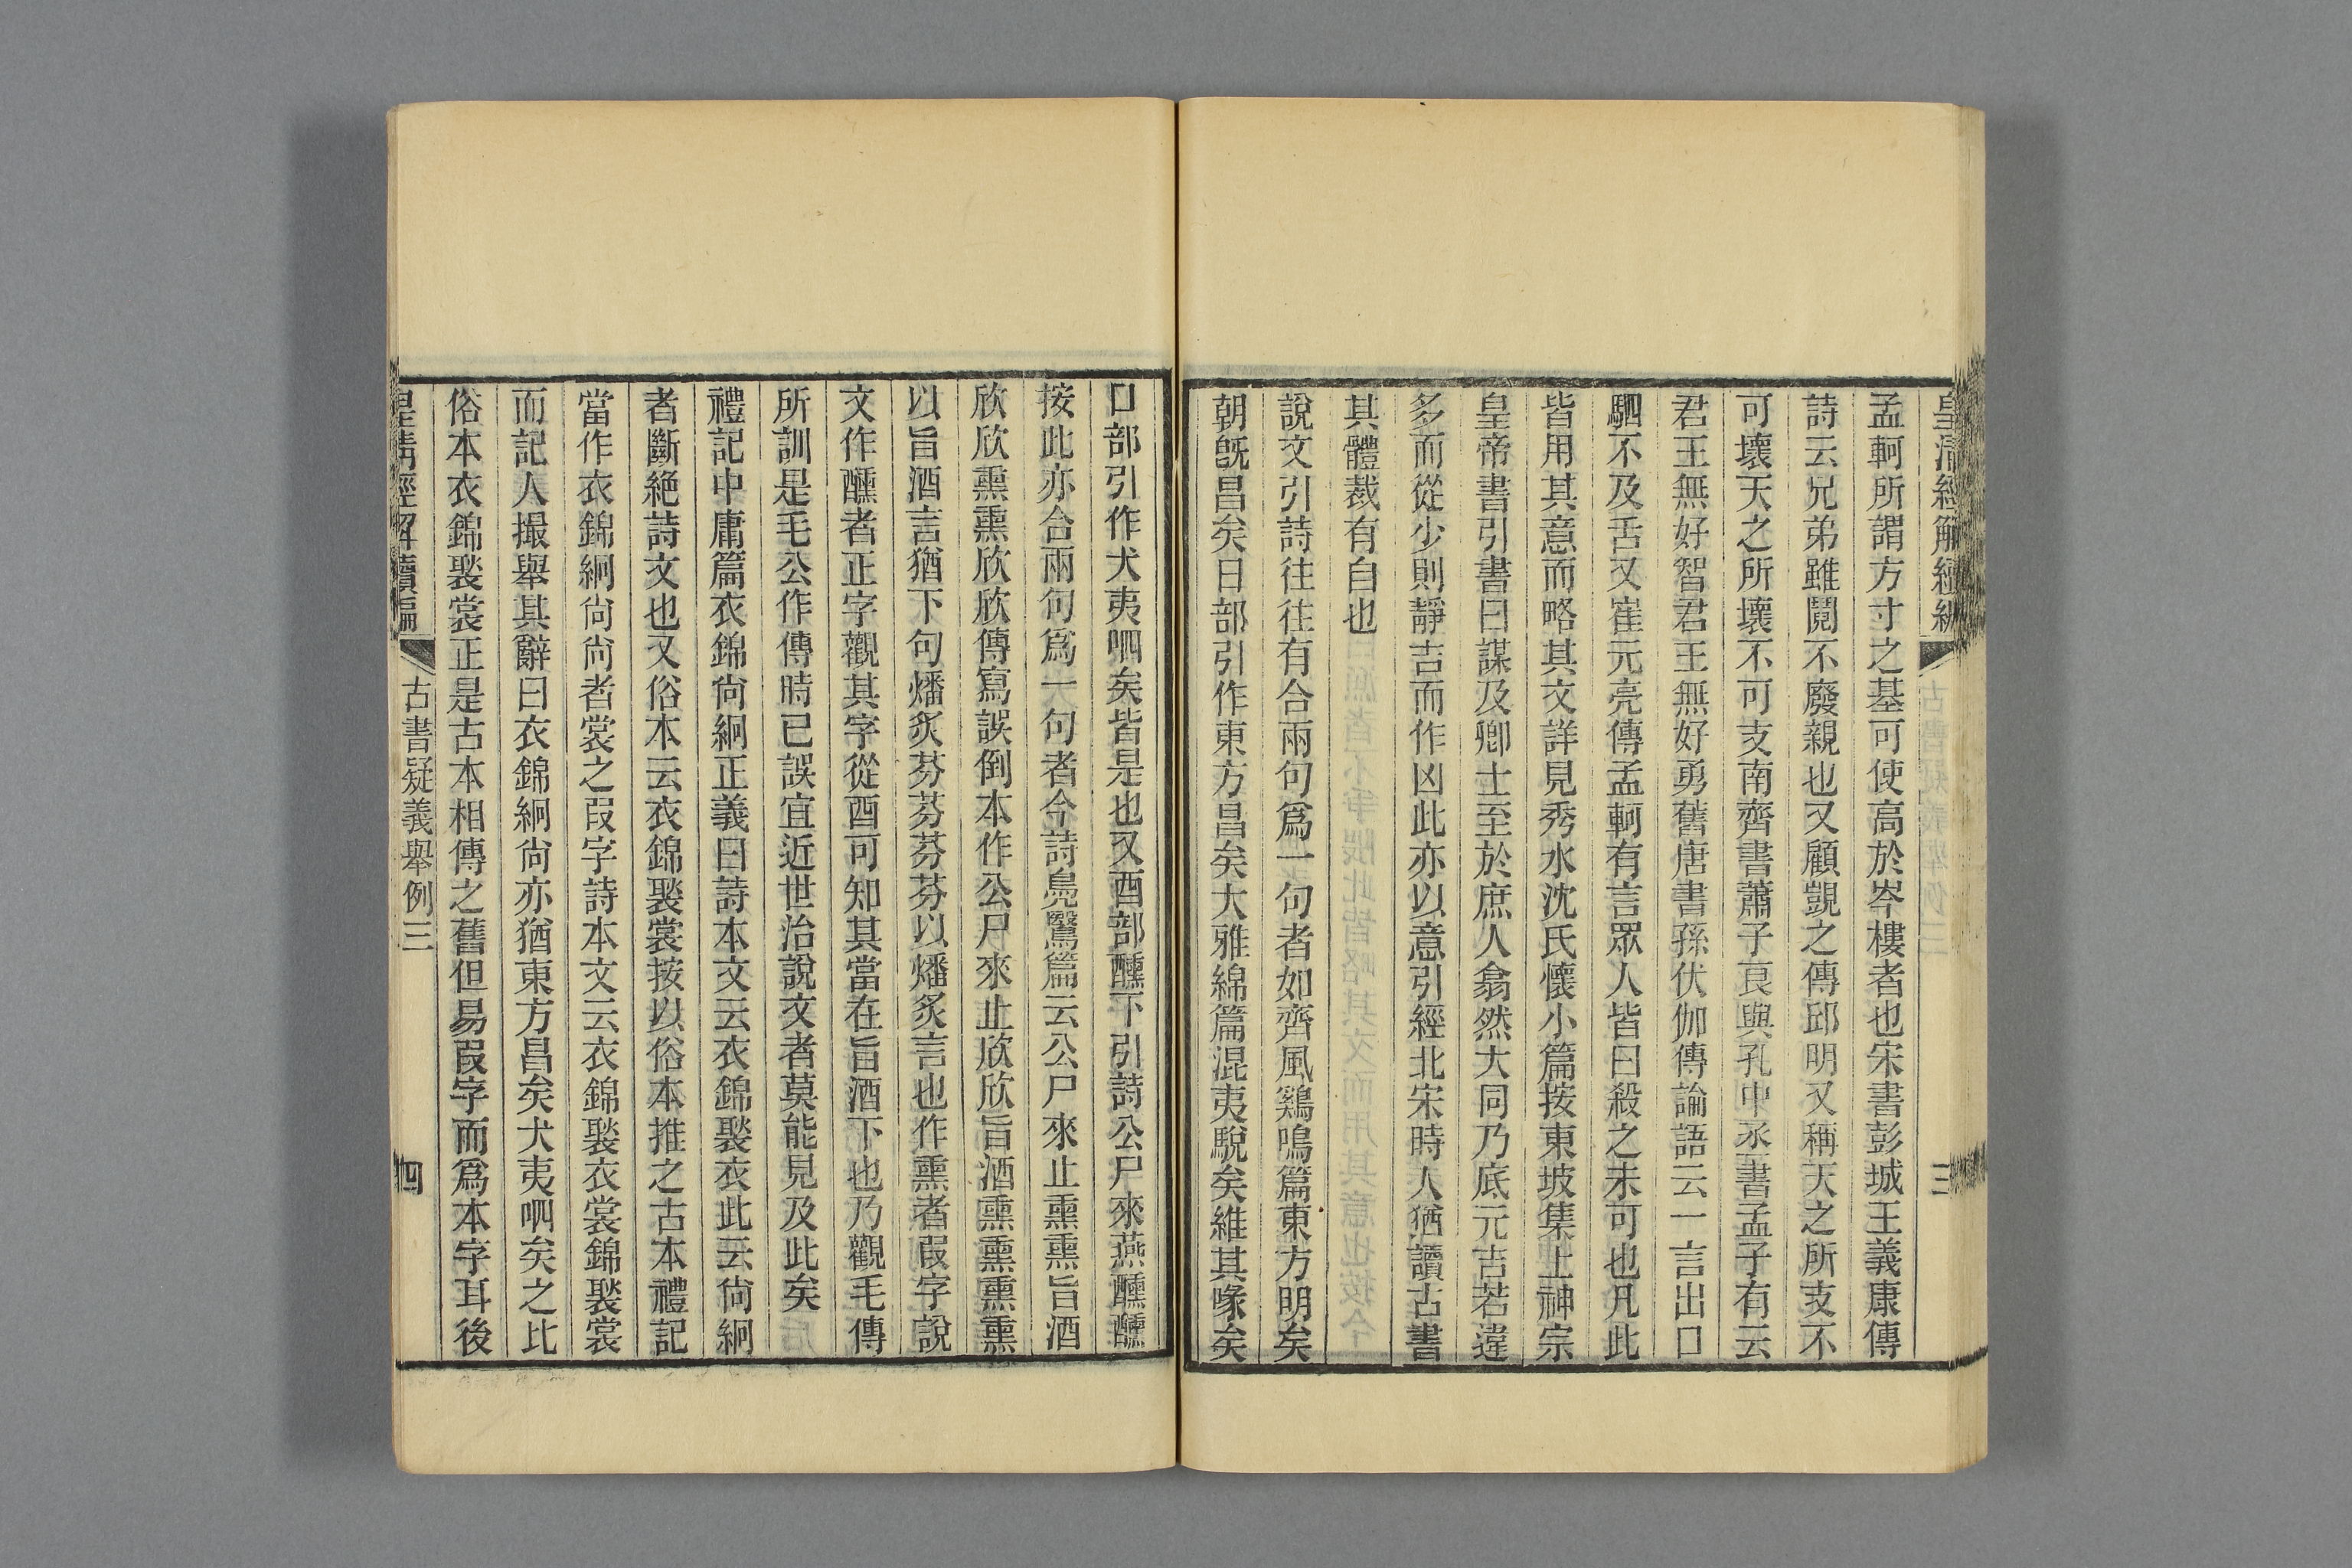 皇清經解續編
三
孟軻所謂方寸之基可使高於岑樓者也宋書彭城王義康傳
詩云兄弟雖鬩不廢親也又顧覬之傳邱明又稱天之所支不
可壞天之所壞不可支南齊書蕭子良與孔中丞書孟子有云
君王無好智君王無好勇舊唐書孫伏伽傳論語云一言出口
駟不及舌又崔元亮傳孟軻有言眾人皆曰殺之未可也凡此
皆用其意而略其文詳見秀水沈氏懷小篇按東坡集上神宗
皇帝書引書曰謀及卿士至於庶人翕然大同乃底元吉若違
多而從少則靜吉而作凶此亦以意引經北宋時人猶讀古書
其體裁有自也
說文引詩往往有合兩句爲一句者如齊風雞鳴篇東方明矣
朝旣昌矣日部引作東方昌矣大雅綿篇混夷駾矣維其喙矣
口部引作犬夷呬矣皆是也又酉部醺下引詩公尸來燕醺醺
按此亦合兩句爲一句者今詩鳧鷖篇云公尸來止熏熏旨酒
欣欣熏熏欣欣傳寫誤倒本作公尸來止欣欣旨酒熏熏熏熏
以旨酒言猶下句燔炙芬芬芬芬以燔炙言也作熏者叚字說
文作醺者正字觀其字從酉可知其當在旨酒下也乃觀毛傳
所訓是毛公作傳時已誤宜近世治說文者莫能見及此矣
禮記中庸篇衣錦尙絅正義曰詩本文云衣錦褧衣此云尙絅
者斷絕詩文也又俗本云衣錦褧裳按以俗本推之古本禮記
當作衣錦絅尙尙者裳之叚字詩本文云衣錦褧衣裳錦褧裳
而記人撮舉其辭曰衣錦絅尙亦猶東方昌矣犬夷呬矣之比
俗本衣錦褧裳正是古本相傳之舊但易叚字而爲本字耳後
皇清經解續編
古書疑義舉例三
四